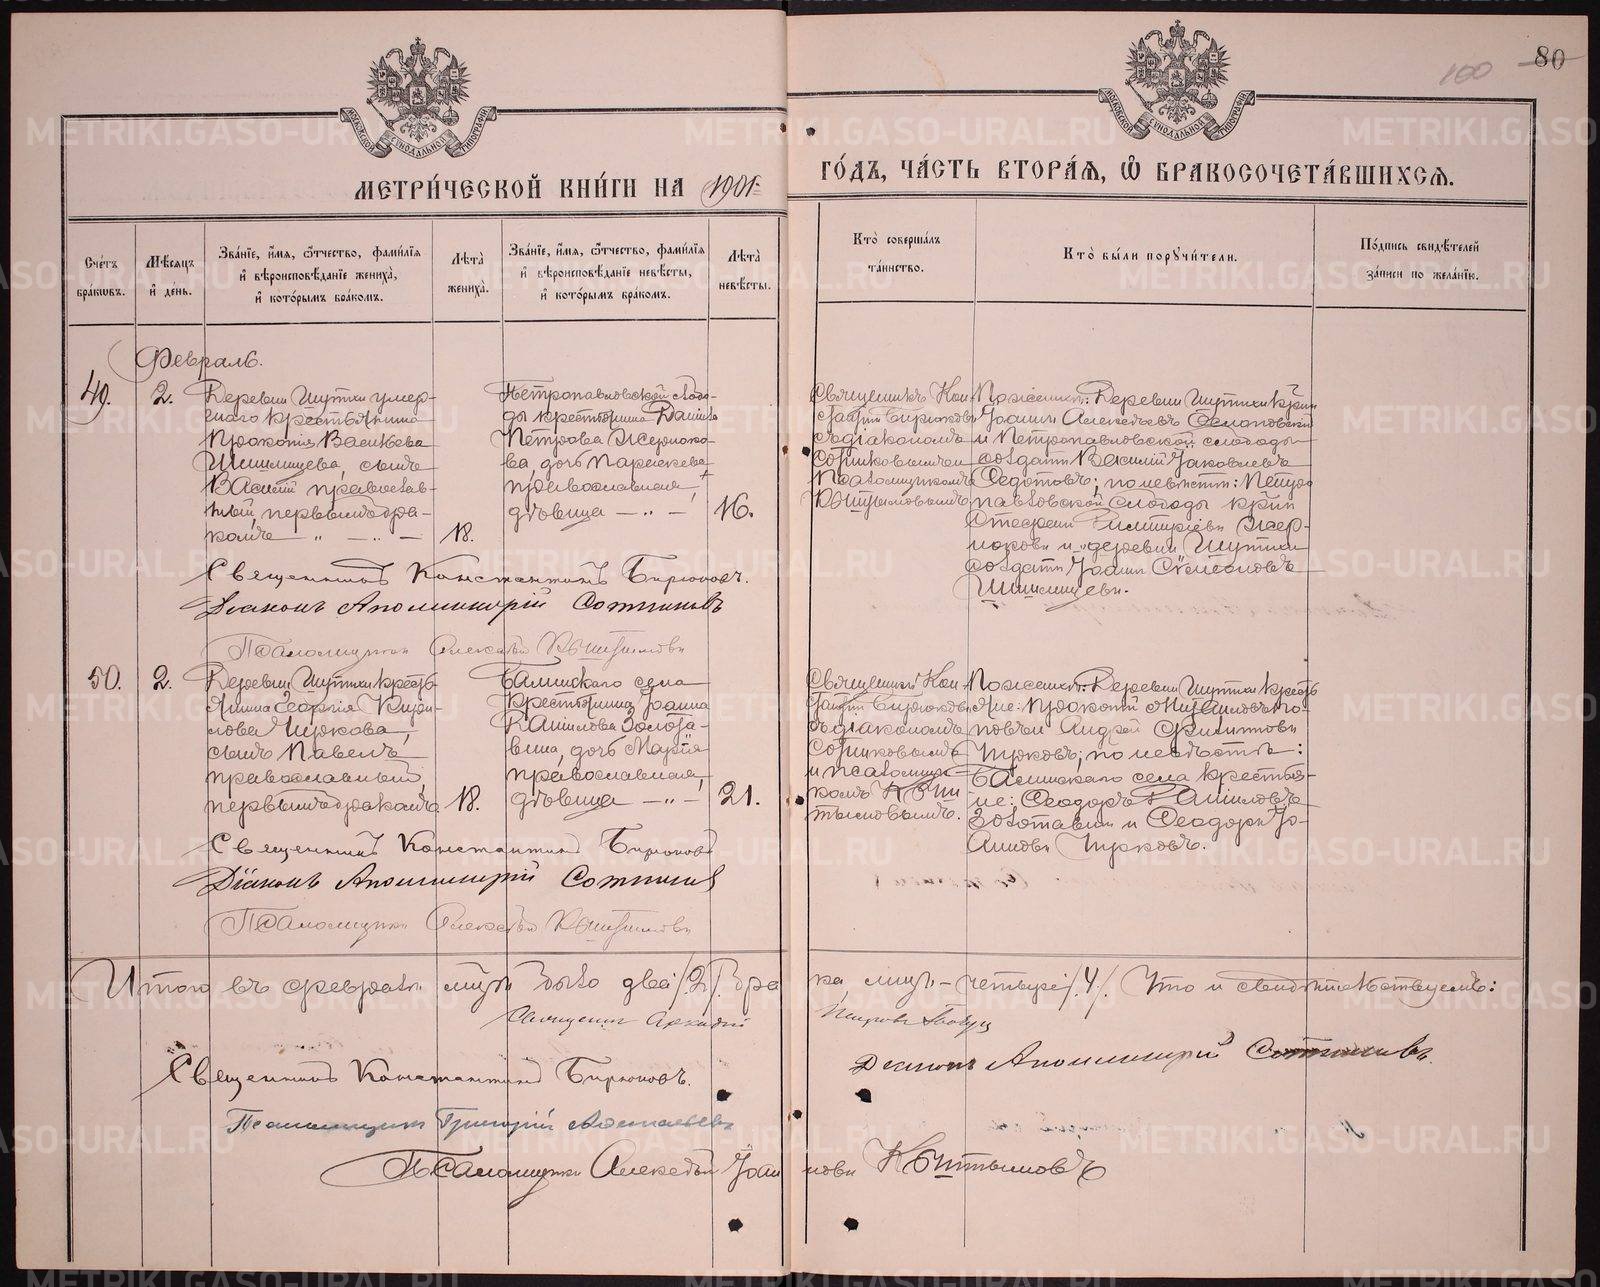 100 80
МЕТРИ́ЧЕСКОЙ КНИ́ГИ НА 1901:
ГО́ДЪ, ЧА́СТЬ ВТОРА́Я, Ѽ БРАКОСОЧЕТА́ВШИХСЯ.
Сче́тъ бра́ковъ.
Мѣ́сяцъ и҆ де́нь.
Зва́нїе, и҆́мя, ѻ҆́тчество, фами́лїя
и҆ вѣроисповѣ́данїе жениха̀,
и҆ кото́рымъ бра́комъ.
Лѣ́та
жениха̀.
Зва́нїе, и҆́мя, ѻ҆́тчество, фами́лїя
и҆ вѣроисповѣ́данїе невѣ́сты,
и҆ кото́рымъ бра́комъ.
Лѣ́та
невѣ́сты.
Кто̀ соверша́лъ
та́инство.
Кто̀ бы́ли порꙋчи́тели.
По́дпись свидѣ́телей
за́писи по жела́нїю.
Февраль.
49.
2.
Деревни Шутихи умер-
шаго крестьянина
Прокопія Васильева
Шишмищева, сынъ
Василій православ-
ный, первымъ бра-
комъ — " — " —
18.
Петропавловской слобо-
ды крестьянина Данила
Петрова
ва, дочь Параскева
православная,
дѣвица — " —
16.
Священникъ Кон-
стантин Бирюковъ
съ діакономъ
Сотниковымъ и
Псаломщикомъ
Кыштымовымъ
По женихѣ: Деревни Шутихи крест.
Іоаннъ Алексѣевъ
и Петропавловской слободы
солдатъ Василій Яковлевъ
Федотовъ; по невѣстѣ: Петро
павловской слободы крест.
Стефанъ Димитріевъ
и деревни Шутихи
солдатъ Іоаннъ Симеоновъ
Шишмищевъ.
Священникъ Константинъ Бирюковъ.
Діаконъ Аполлинарій Сотниковъ
Псаломщикъ Алексѣй Кыштымовъ
50.
2.
Деревни Шутихи кресть
янина Георгія Кирил-
лова Чуркова,
сынъ Павелъ
православный
первымъ бракомъ
18.
Баминскаго села
крестьянина Іоанна
Данилова Золота-
вина, дочь Марія
православная,
дѣвица — " —
21.
Священникъ Кон-
стантин Бирюковъ
съ діакономъ
Сотниковымъ
и псаломщи-
комъ Кыш
тымовымъ.
По женихѣ: Деревни Шутихи кресть
яне: Прокопій Михайловъ По-
повъ и Андрей Филипповъ
Чурковъ; по невѣстѣ:
Баминскаго села крестья-
не: Феодоръ Даниловъ
Золотавинъ и Феодоръ Іо-
анновъ Чурковъ.
Священникъ Константинъ Бирюковъ
Діаконъ Аполлинарій Сотниковъ
Псаломщикъ Алексѣй Кыштымовъ
Итого въ февралѣ мцѣ было два /2/. Бра
ка, лицъ – четыре /4/. Что и свидѣтельствуемъ:
Священникъ Аркадій
Священникъ Константинъ Бирюковъ.
Діаконъ Аполлинарій Сотниковъ.
Псаломщикъ Григорій
Псаломщикъ Алексѣй Іоан
новъ Кыштымовъ
МОСКОВСКОЙ СѴНОДАЛЬНОЙ ТИПОГРАФІИ
МОСКОВСКОЙ СѴНОДАЛЬНОЙ ТИПОГРАФІИ
METRIKI.GASO-URAL.RU